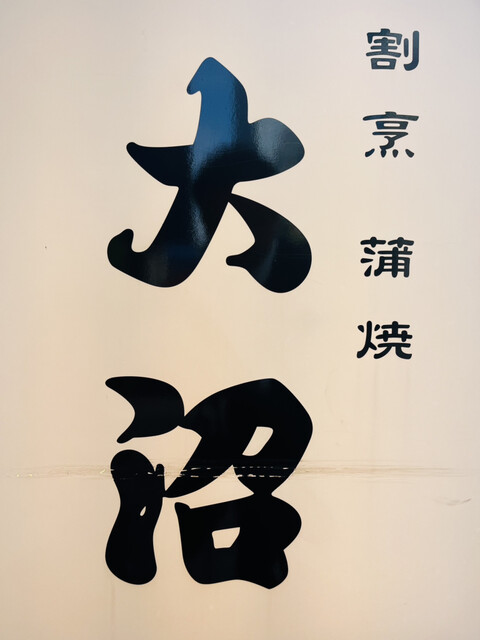 割烹 蒲焼
大沼